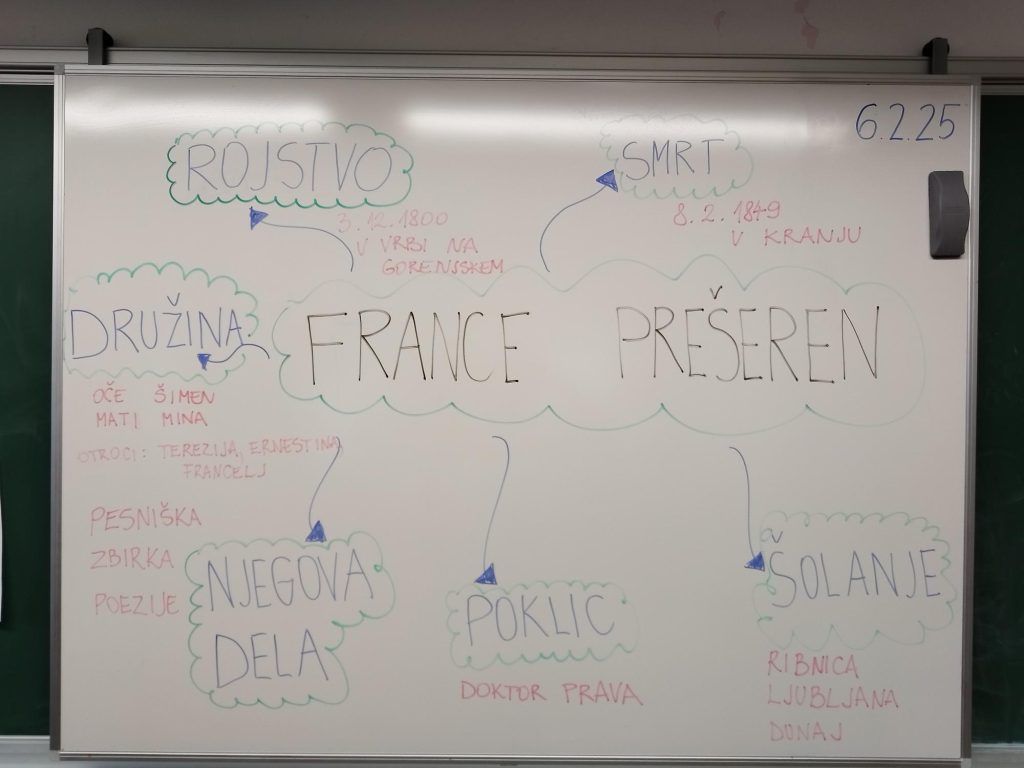 6.2.25
ROJSTVO
3.12.1800
V VRBI NA
GORENJSKEM
SMRT
8. 2. 1849
V KRANJU
FRANCE PREŠEREN
DRUŽINA
OČE ŠIMEN
MATI MINA
OTROCI: TEREZIJA, ERNESTINA
FRANCELJ
NJEGOVA
DELA
PESNIŠKA
ZBIRKA
POEZIJE
POKLIC
DOKTOR PRAVA
ŠOLANJE
RIBNICA
LJUBLJANA
DUNAJ